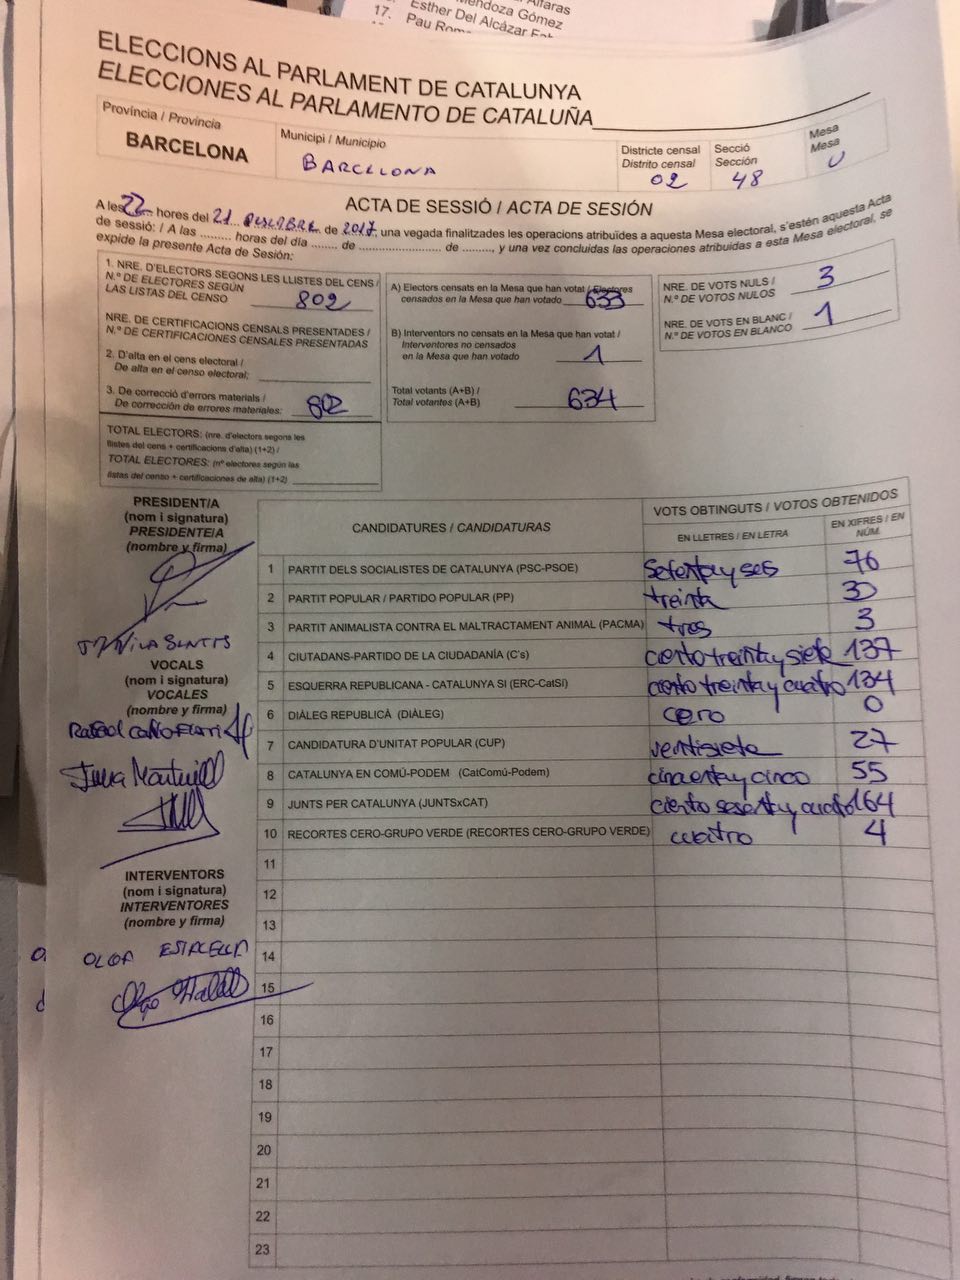 Mendoza Gómez
17. Esther Del Alcázar
Pau
ELECCIONS AL PARLAMENT DE CATALUNYA
ELECCIONES AL PARLAMENTO DE CATALUÑA
Província / Provincia
BARCELONA
Municipi / Municipio
BARCELONA
Districte censal
Distrito censal
02
Secció
Sección
48
Mesa
Mesa
U
ACTA DE SESSIÓ / ACTA DE SESIÓN
A les 22 hores del 21 DESEMBRE de 2017, una vegada finalitzades les operacions atribuïdes a aquesta Mesa electoral, s'estén aquesta Acta
de sessió: / A las ......... horas del día ........ de .......................... de ........, y una vez concluidas las operaciones atribuidas a esta Mesa electoral, se
expide la presente Acta de Sesión:
1. NRE. D'ELECTORS SEGONS LES LLISTES DEL CENS /
N.º DE ELECTORES SEGÚN
LAS LISTAS DEL CENSO 802
NRE. DE CERTIFICACIONS CENSALS PRESENTADES /
N.º DE CERTIFICACIONES CENSALES PRESENTADAS
2. D'alta en el cens electoral /
De alta en el censo electoral:
3. De correcció d'errors materials /
De corrección de errores materiales: 802
TOTAL ELECTORS: (nre. d'electors segons les
llistes del cens + certificacions d'alta) (1+2) /
TOTAL ELECTORES: (nº electores según las
listas del censo + certificaciones de alta) (1+2)
A) Electors censats en la Mesa que han votat / Electores
censados en la Mesa que han votado 633
B) Interventors no censats en la Mesa que han votat /
Interventores no censados
en la Mesa que han votado 1
Total votants (A+B) /
Total votantes (A+B) 634
NRE. DE VOTS NULS /
N.º DE VOTOS NULOS 3
NRE. DE VOTS EN BLANC /
N.º DE VOTOS EN BLANCO 1
PRESIDENT/A
(nom i signatura)
PRESIDENTE/A
(nombre y firma)
VOCALS
(nom i signatura)
VOCALES
(nombre y firma)
INTERVENTORS
(nom i signatura)
INTERVENTORES
(nombre y firma)
OLGA
CANDIDATURES / CANDIDATURAS
VOTS OBTINGUTS / VOTOS OBTENIDOS
EN LLETRES / EN LETRA
EN XIFRES / EN
NÚM.
1 PARTIT DELS SOCIALISTES DE CATALUNYA (PSC-PSOE) setenta y seis 76
2 PARTIT POPULAR / PARTIDO POPULAR (PP) treinta 30
3 PARTIT ANIMALISTA CONTRA EL MALTRACTAMENT ANIMAL (PACMA) tres 3
4 CIUTADANS-PARTIDO DE LA CIUDADANÍA (C's) ciento treinta y siete 137
5 ESQUERRA REPUBLICANA - CATALUNYA SÍ (ERC-CatSí) ciento treinta y cuatro 134
6 DIÀLEG REPUBLICÀ (DIÀLEG) cero 0
7 CANDIDATURA D'UNITAT POPULAR (CUP) ventisiete 27
8 CATALUNYA EN COMÚ-PODEM (CatComú-Podem) cincuenta y cinco 55
9 JUNTS PER CATALUNYA (JUNTSxCAT) ciento sesenta y cuatro 164
10 RECORTES CERO-GRUPO VERDE (RECORTES CERO-GRUPO VERDE) cuatro 4
11
12
13
14
15
16
17
18
19
20
21
22
23